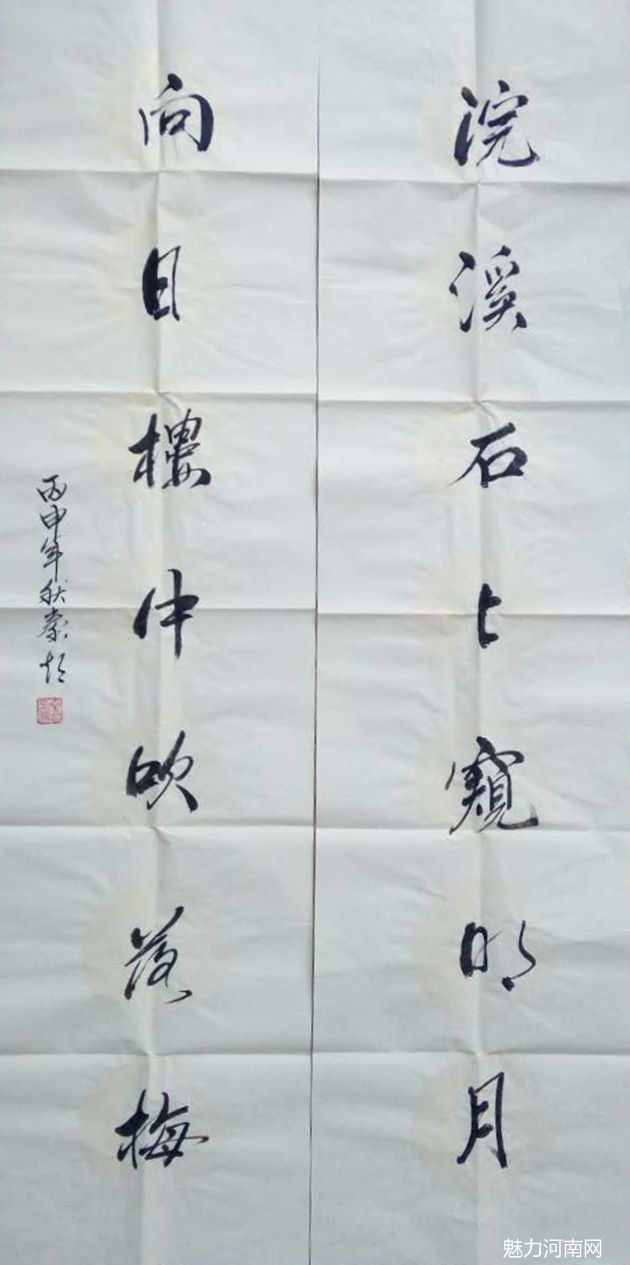 浣溪石上窺明月
向日樓中吹落梅
丙申年秋
魅力河南网